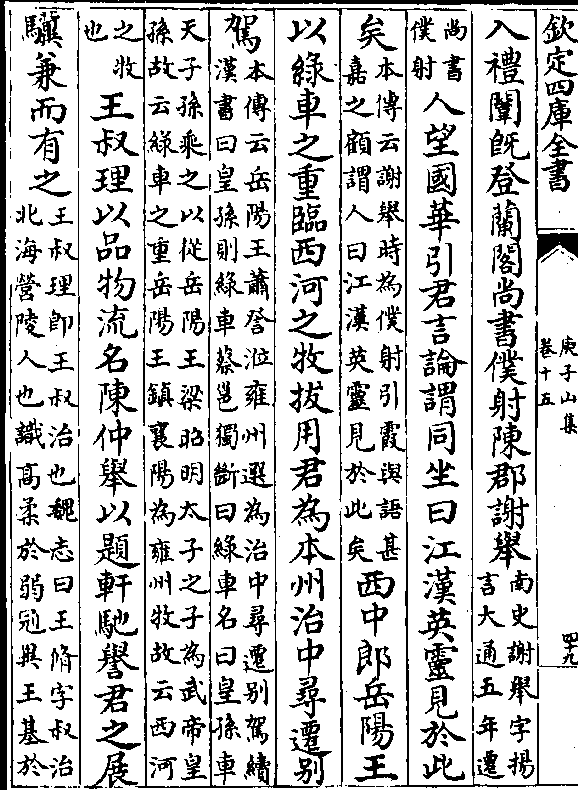 欽定四庫全書
庾子山集
卷十五
四十九
入禮闈旣登蘭閣尚書僕射陳郡謝舉南史謝舉字揚
言大通五年遷
尚書
僕射人望國華引君言論謂同坐曰江漢英靈見於此
矣本傳云謝舉時為僕射引霞與語甚
嘉之顧謂人曰江漢英靈見於此矣西中郎岳陽王
以綠車之重臨西河之牧拔用君為本州治中尋遷别
駕本傳云岳陽王蕭詧涖雍州選為治中尋遷别駕續
漢書曰皇孫則綠車蔡邕獨斷曰綠車名曰皇孫車
天子孫乘之以從岳陽王梁昭明太子之子為武帝皇
孫故云綠車之重岳陽王鎮襄陽為雍州牧故云西河
之牧
也王叔理以品物流名陳仲舉以題軒馳譽君之展
驥兼而有之王叔理卽王叔治也魏志曰王脩字叔治
北海營陵人也識高柔於弱冠異王基於